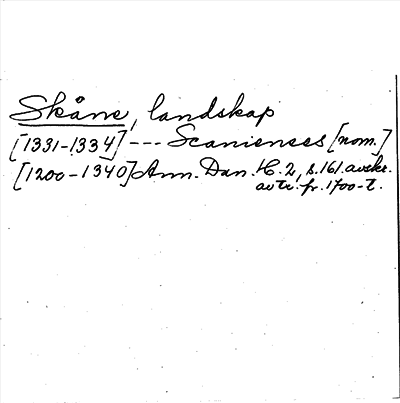 Skåne, landskap
[1331-1334] --- Scanienses [nom.]
[1200-1340] Ann. Dan. H. 2, s. 161. avskr.
av tr. fr. 1700-t.